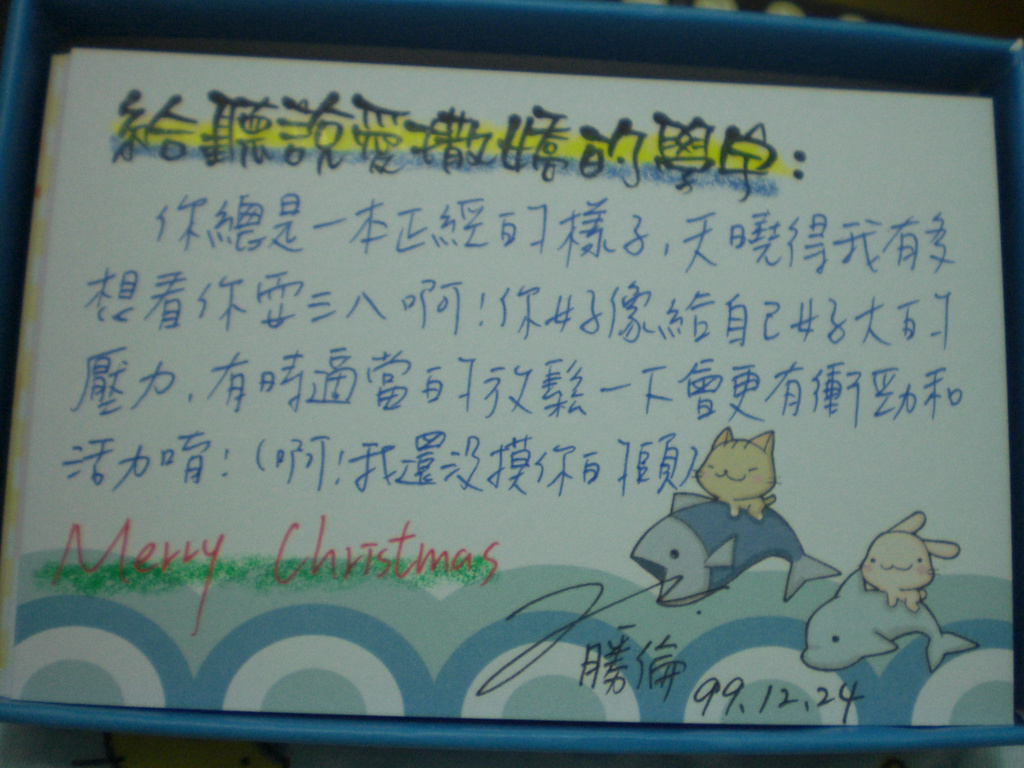 給聽說愛撒嬌的學中:
你總是一本正經的樣子,天曉得我有多
想看你耍三八啊!你好像給自己好大的
壓力,有時適當的放鬆一下會更有衝勁和
活力唷!(啊!我還沒摸你的頭)
Merry Christmas
勝倫
99.12.24